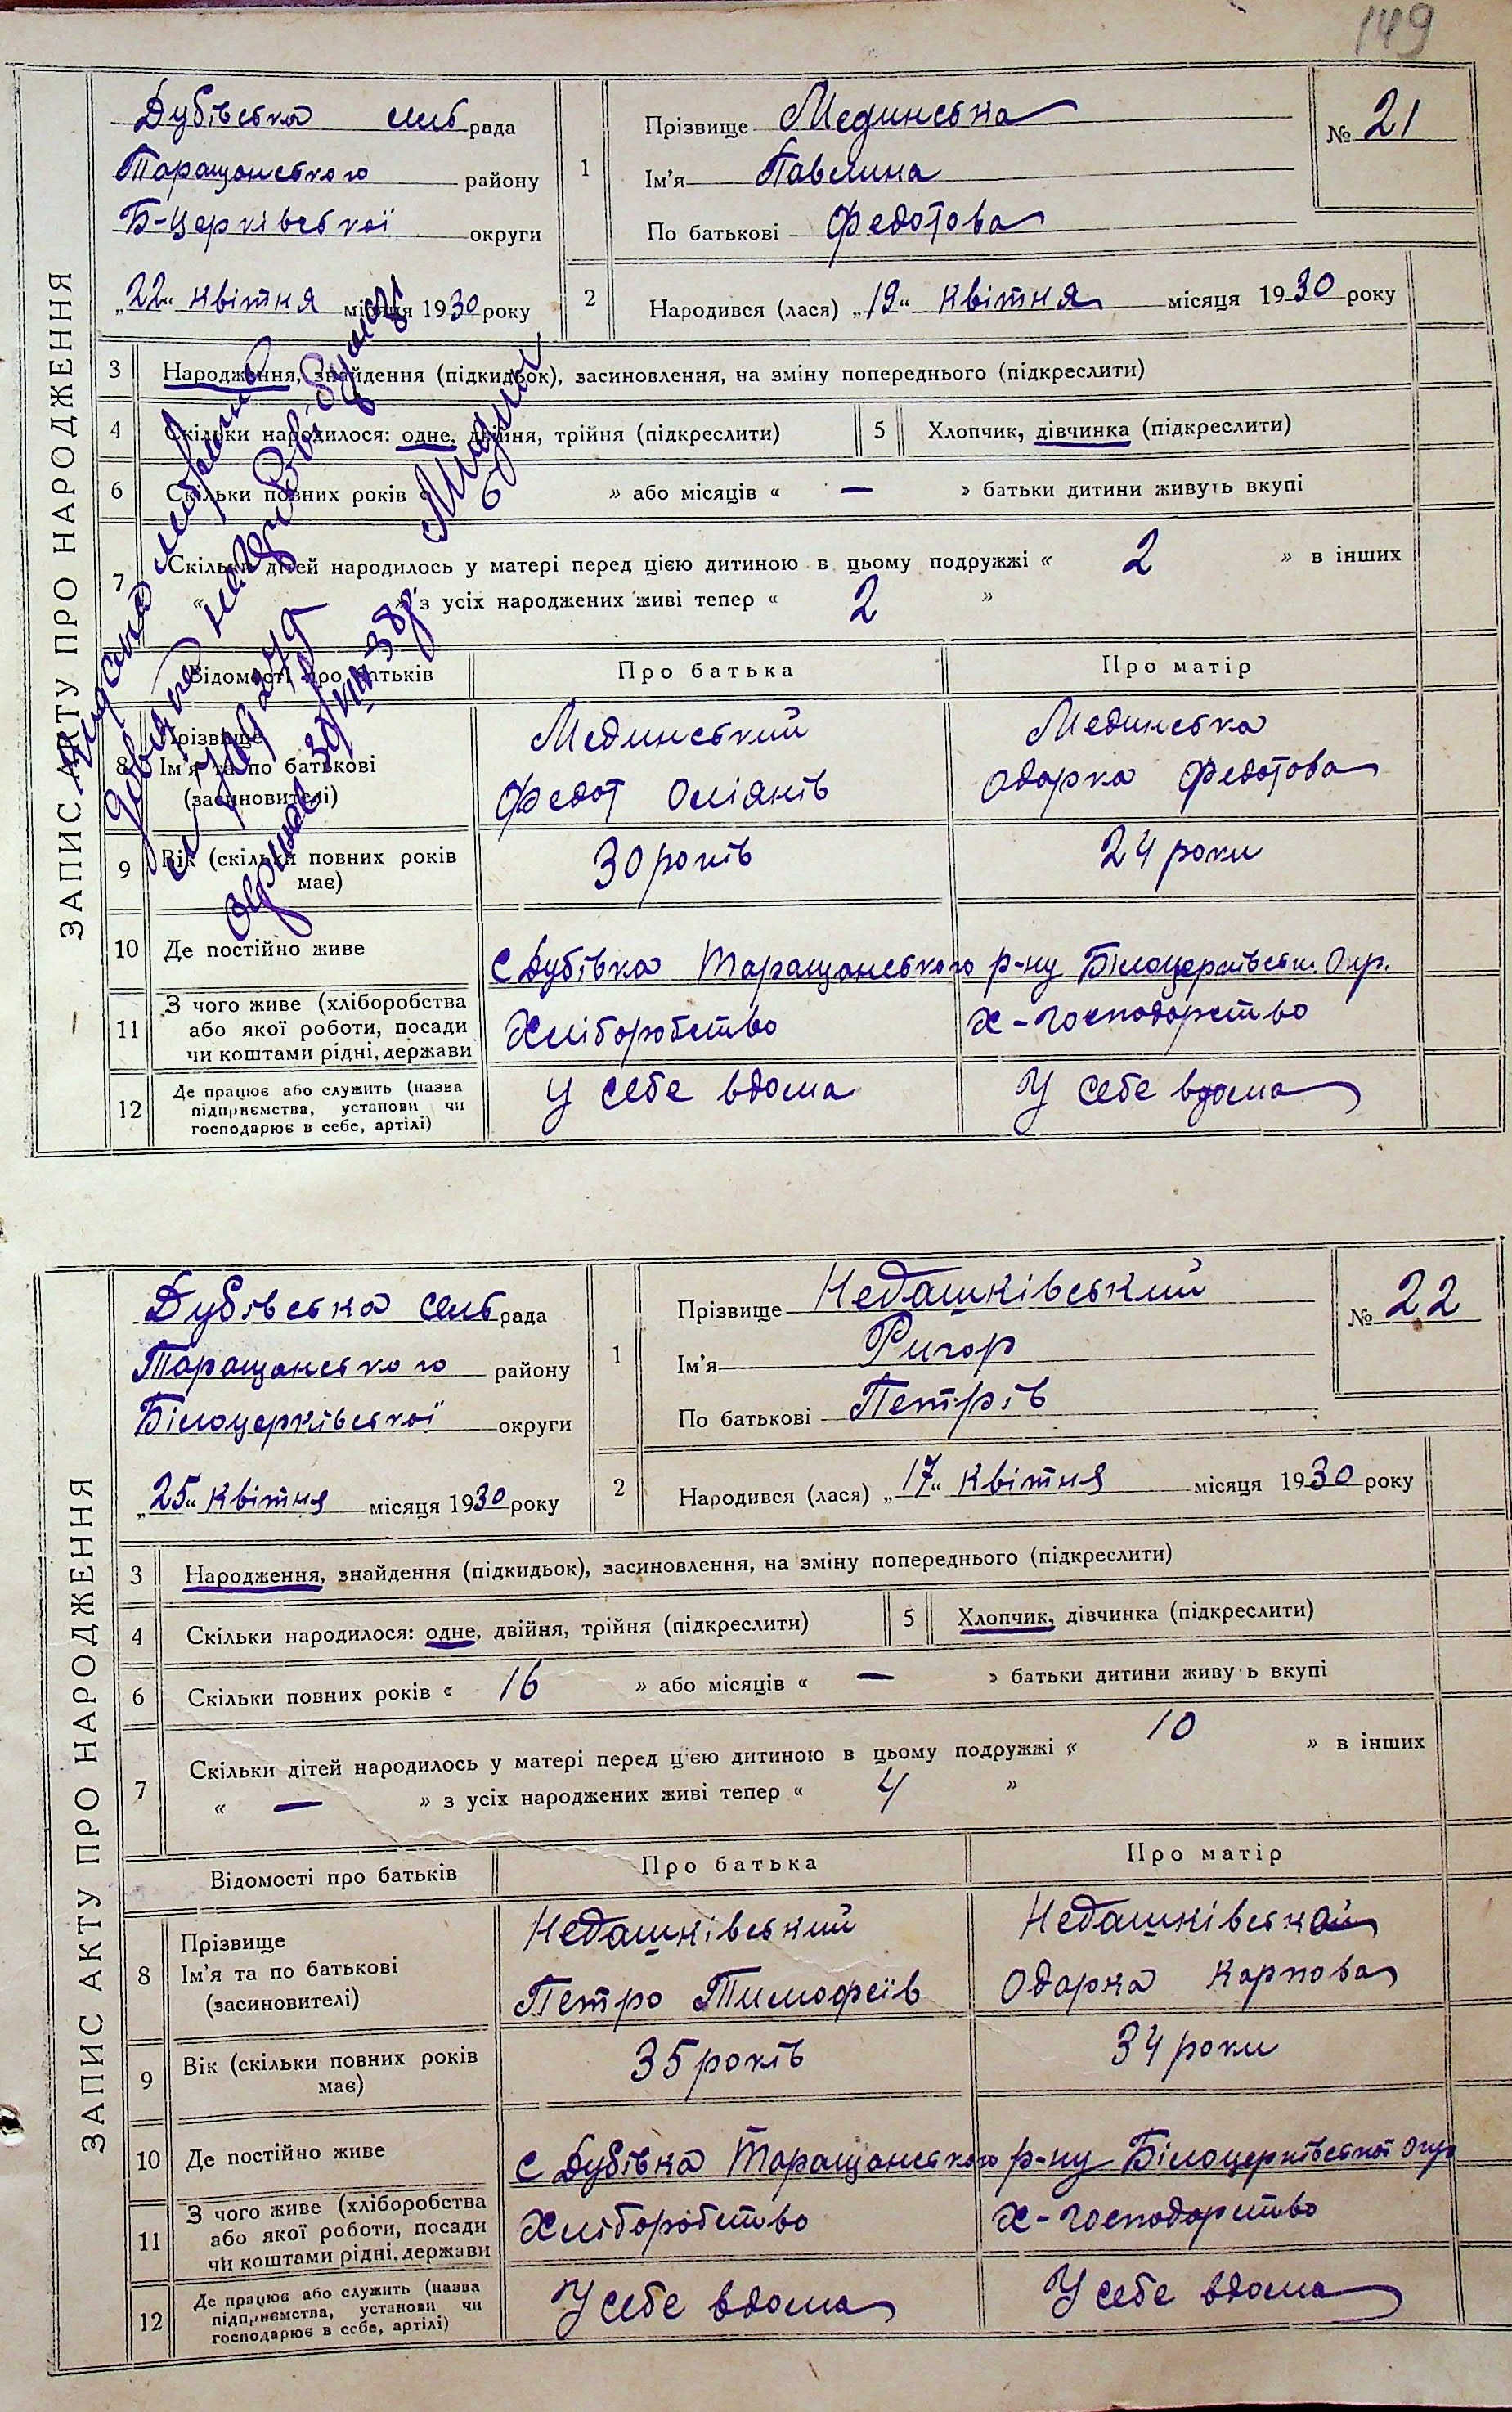 149
ЗАПИС АКТУ ПРО НАРОДЖЕННЯ
Дубівська сільрада
Таращанського району
Б-Церківської округи
„22“ квітня місяця 1930 року
1
Прізвище Мединська
Ім'я Павлина
По батькові Федотова
№ 21
2 Народився (лася) „19“ квітня місяця 1930 року
3 Народження, знайдення (підкидьок), засиновлення, на зміну попереднього (підкреслити)
4 Скільки народилося: одне, двійня, трійня (підкреслити) 5 Хлопчик, дівчинка (підкреслити)
6 Скільки повних років « » або місяців « — » батьки дитини живуть вкупі
7 Скільки дітей народилось у матері перед цією дитиною в цьому подружжі « 2 » в інших
« » з усіх народжених живі тепер « 2 »
Відомості про батьків Про батька Про матір
8 Прізвище
Ім'я та по батькові
(засиновителі)
Мединський
Федот Оліянів
Мединська
Одарка Федотова
9 Вік (скільки повних років має) 30 років 24 роки
10 Де постійно живе С Дубівка Таращанського р-ну Білоцерківськ. Окр.
11 З чого живе (хліборобства
або якої роботи, посади
чи коштами рідні, держави
Хліборобство Х-господарство
12 Де працює або служить (назва
підприємства, установи чи
господарює в себе, артілі)
У себе вдома У себе вдома
30/VIII-38р
ЗАПИС АКТУ ПРО НАРОДЖЕННЯ
Дубівська сільрада
Таращанського району
Білоцерківської округи
„25“ квітня місяця 1930 року
1
Прізвище Недашківський
Ім'я Ригор
По батькові Петрів
№ 22
2 Народився (лася) „17“ квітня місяця 1930 року
3 Народження, знайдення (підкидьок), засиновлення, на зміну попереднього (підкреслити)
4 Скільки народилося: одне, двійня, трійня (підкреслити) 5 Хлопчик, дівчинка (підкреслити)
6 Скільки повних років « 16 » або місяців « — » батьки дитини живуть вкупі
7 Скільки дітей народилось у матері перед цією дитиною в цьому подружжі « 10 » в інших
« — » з усіх народжених живі тепер « 4 »
Відомості про батьків Про батька Про матір
8 Прізвище
Ім'я та по батькові
(засиновителі)
Недашківський
Петро Тимофеів
Недашківська
Одарка Карпова
9 Вік (скільки повних років має) 35 років 34 роки
10 Де постійно живе С Дубівка Таращанського р-ну Білоцерківської Окр
11 З чого живе (хліборобства
або якої роботи, посади
чи коштами рідні, держави
Хліборобство Х-господарство
12 Де працює або служить (назва
підприємства, установи чи
господарює в себе, артілі)
У себе вдома У себе вдома